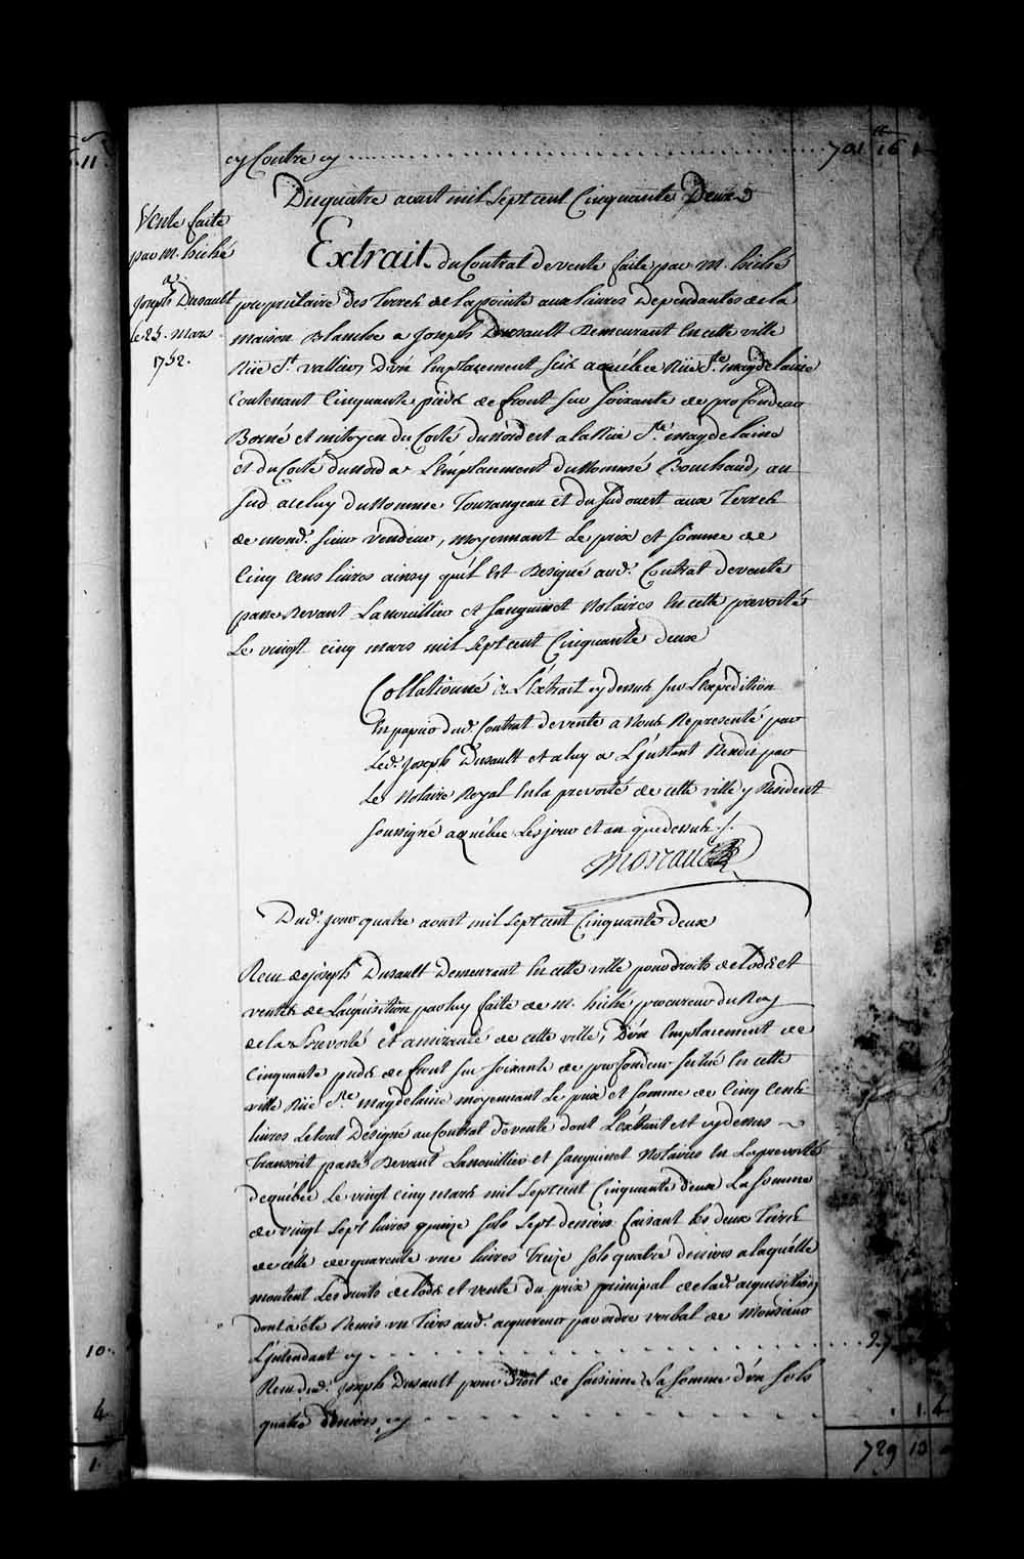 11
cy Contre cy ........ 701 16 1
Du quatre aoust mil Sept cent Cinquante Deux
Vente faite
par M. hiché
a
Joseph Dusault
le 25. Mars
1752.
Extrait du Contrat de vente faite par M. hiché
propriétaire des Terres de la pointe aux lievres Dependantes de la
maison Blanche a Joseph Dusault Demeurant En cette ville
Rüe St. vallier, D'un Emplacement scis a québec Rüe Ste. magdelaine
Contenant Cinquante pieds de front sur soixante de profondeur
Borné et mitoyen du Costé du Nord est a la Rüe Ste. magdelaine
et du Costé du nord a L'Emplacement du Nommé Bouchaud, au
sud a celuy du Nomme Tourangeau et du sud ouest aux Terres
de mond. sieur vendeur, moyennant Le prix et somme de
Cinq cens livres ainsy qu'il Est Designé aud. Contrat de vente
passé Devant Lanouillier et Sanguinet Notaires En cette prevosté
Le vingt cinq mars mil sept cent Cinquante deux
Collationné à L'Extrait cy dessus sur L'Expedition
En papier dud. Contrat de vente a Nous Representé par
Led. Joseph Dusault et a luy a L'instant Rendu par
Le Notaire Royal En la prevosté de cette ville y Resident
soussigné a québec Les jour et an que dessus ./.
Moreau
Dud. jour quatre aoust mil sept cent Cinquante deux
Receu de joseph Dusault Demeurant En cette ville pour droits de Lods et
ventes de L'acquisition par luy faite de M. hiché procureur du Roy
de la Prevosté et amirauté de cette ville, D'un Emplacement de
Cinquante pieds de front sur soixante de profondeur situé En cette
ville Rüe Ste. Magdelaine moyennant Le prix et somme de Cinq Cents
livres Le tout Designé au Contrat de vente dont L'extrait est cy dessus
Transcrit passé Devant Lanouillier et Sanguinet Notaires En La prevosté
de québec Le vingt cinq mars mil sept cent Cinquante deux La somme
de vingt sept livres quinze sols sept deniers faisant les deux Tiers
de celle de quarente une livres Treize sols quatre deniers a laquelle
montent Les droits de Lods et vente du prix principal de lad. acquisition
dont a été Remis un Tiers aud. acquereur par ordre verbal de Monsieur
L'Intendant cy ........ 27
Receu dud. Joseph Dusault pour Droit de saisinne La somme d'un sols
quatre deniers cy ........ 1. 4
729 13
10.
4
1.